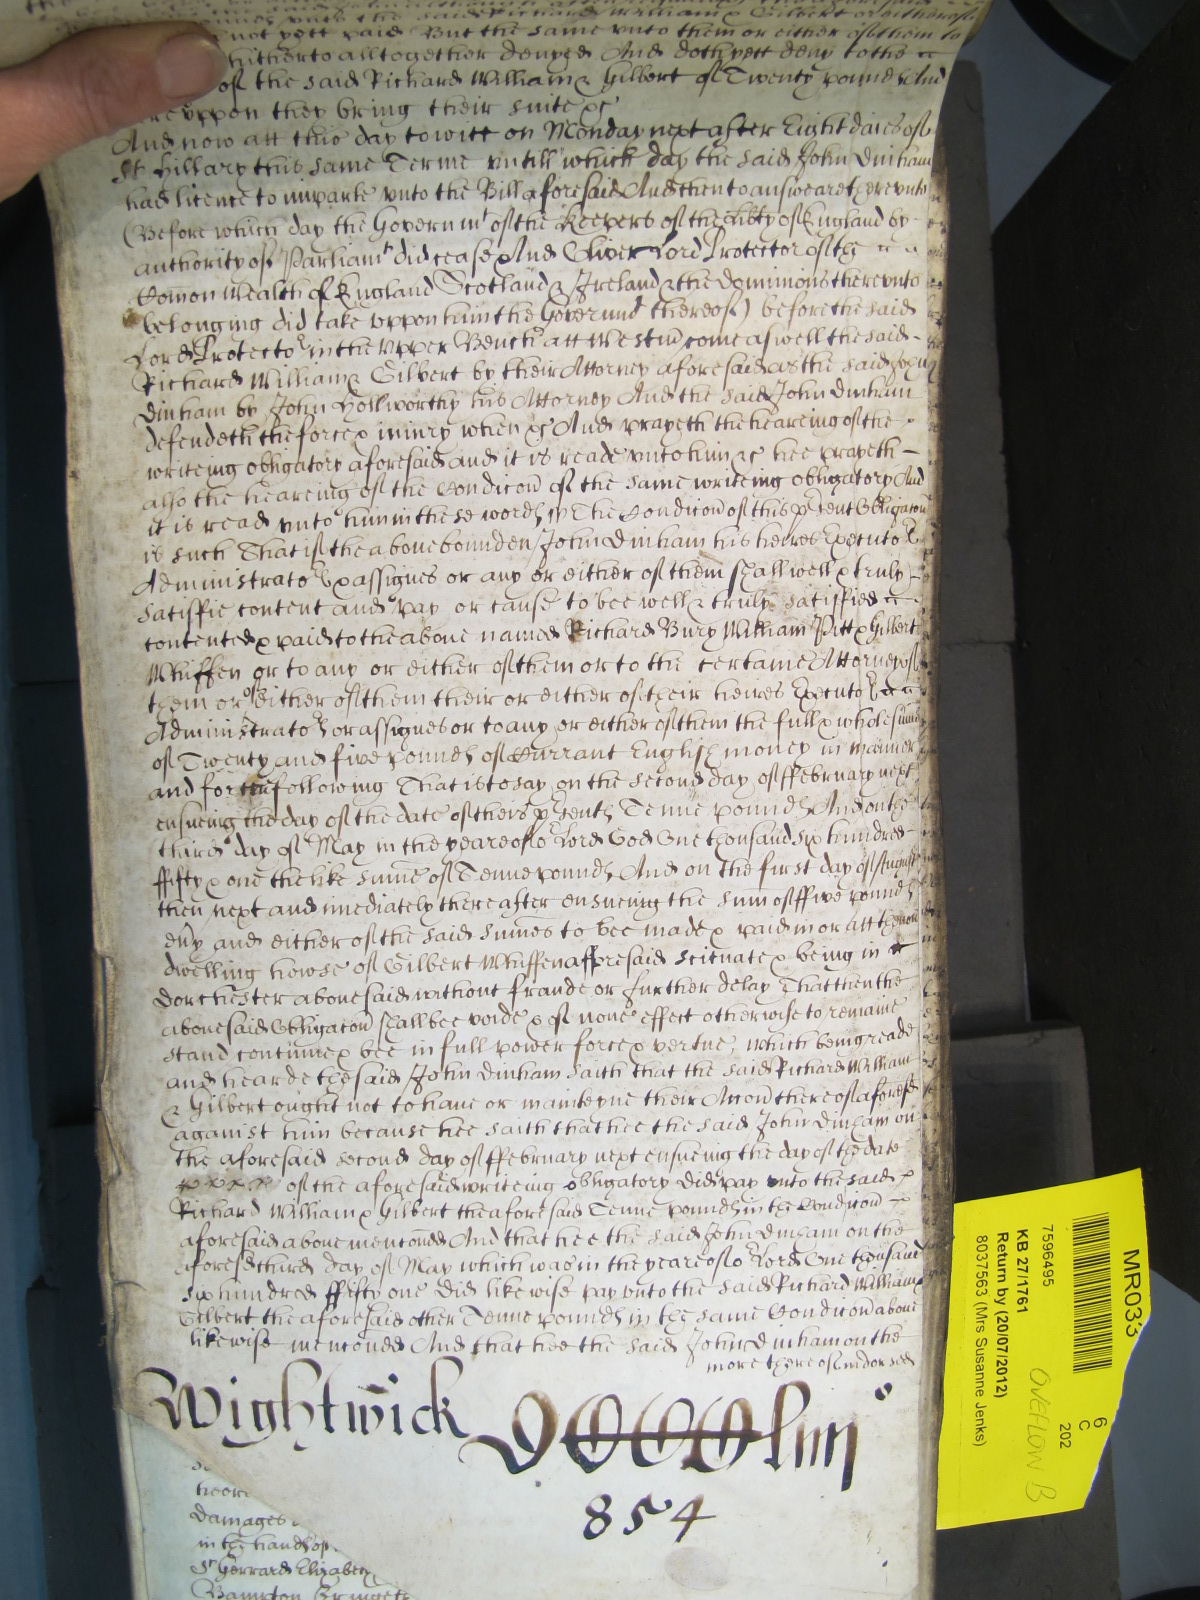 said Richard William & Gilbert or either of
not yett paid But the same unto them or either of them to
hitherto alltogether denyed And doth yett deny to the
of the said Richard William & Gilbert of Twenty pounds And
uppon they bring their suite &c
And now att this day to witt on Monday next after Eight daies of
St Hillary this same Terme untill which day the said John Dinham
had licence to imparle unto the Bill aforesaid And then to answeare thereunto
(Before which day the Governmt of the Keepers of the libty of England by
authority of Parliamt did cease And Oliver Lord Protector of the
Comon wealth of England Scotland & Ireland & the dominions thereunto
belonging did take uppon him the Governmt thereof) before the said
Lord Protector in the Upper Bench att Westm come aswell the said
Richard William & Gilbert by their Attorney aforesaid as the said John
Dinham by John Hollworthy his Attorney And the said John Dinham
defendeth the force & iniury when &c And prayeth the heareing of the
writeing obligatory aforesaid and it is read unto him &c hee prayeth
also the heareing of the Condicon of the same writeing obligatory And
it is read unto him in these words The Condicon of this psent Obligacon
is such That if the above bounden John Dinham his heires Executors
Administrators & assignes or any or either of them shall well & truly
satisfie content and pay or cause to bee well & truly satisfied
contented & paid to the above named Richard Bury William Pitt & Gilbert
Whiffen or to any or either of them or to the certaine Attorney of
them or of either of them their or either of their heires Executors
Administrators or assignes or to any or either of them the full & whole sume
of Twenty and five pounds of Currant English money in manner
and forme following That is to say on the second day of ffebruary next
ensueing the day of the date of theis psents Tenne pounds And on the
third day of May in the yeare of or Lord God One thousand six hundred
ffifty & one the like sume of Tenne pounds And on the first day of August
then next and imediately there after ensueing the sum of ffive pounds
eny and either of the said sumes to bee made & paid in or att the now
dwelling howse of Gilbert Whiffen afforesaid scituate & being in
Dorchester abovesaid without fraude or further delay That then the
abovesaid Obligacon shall bee voide & of none effect otherwise to remaine
stand contynue & bee in full power force & vertue, which being reade
and hearde the said John Dinham saith that the said Richard William
& Gilbert ought not to have or mainteyne their Accon thereof aforesd
against him because hee saith that hee the said John Dinham on
the aforesaid second day of ffebruary next ensueing the day of the date
of the aforesaid writeing obligatory did pay unto the said
Richard William & Gilbert the aforesaid Tenne pounds in the Condicon
aforesaid above mentoned And that hee the said John Dinham on the
aforesd third day of May which was in the yeare of or Lord One thousand
six hundred ffifty one did likewise pay unto the said Richard William &
Gilbert the aforesaid other Tenne pounds in the same Condicon above
likewise mentoned And that hee the said John Dinham on the
more thereof indorsed
Wightwick
854
damages
in the hands of
Sr Gerrard Elizabeth
Bampton
MR033
6
C
202
7596495
KB 27/1761
Return by (20/07/2012)
8037563 (Mrs Susanne Jenks)
OVEFLOW B